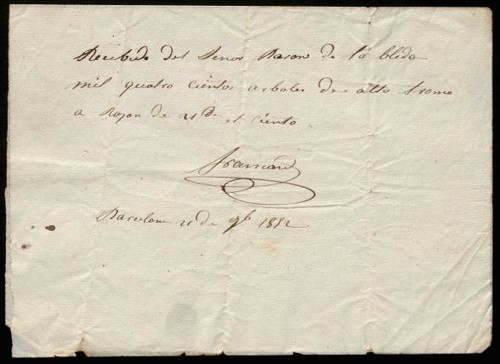 Recibido del Señor Baron de la bleda
mil quatro cientos arboles de alto tromo
a Razon de 21 el ciento.
Barcelona 21 de 9b 1812